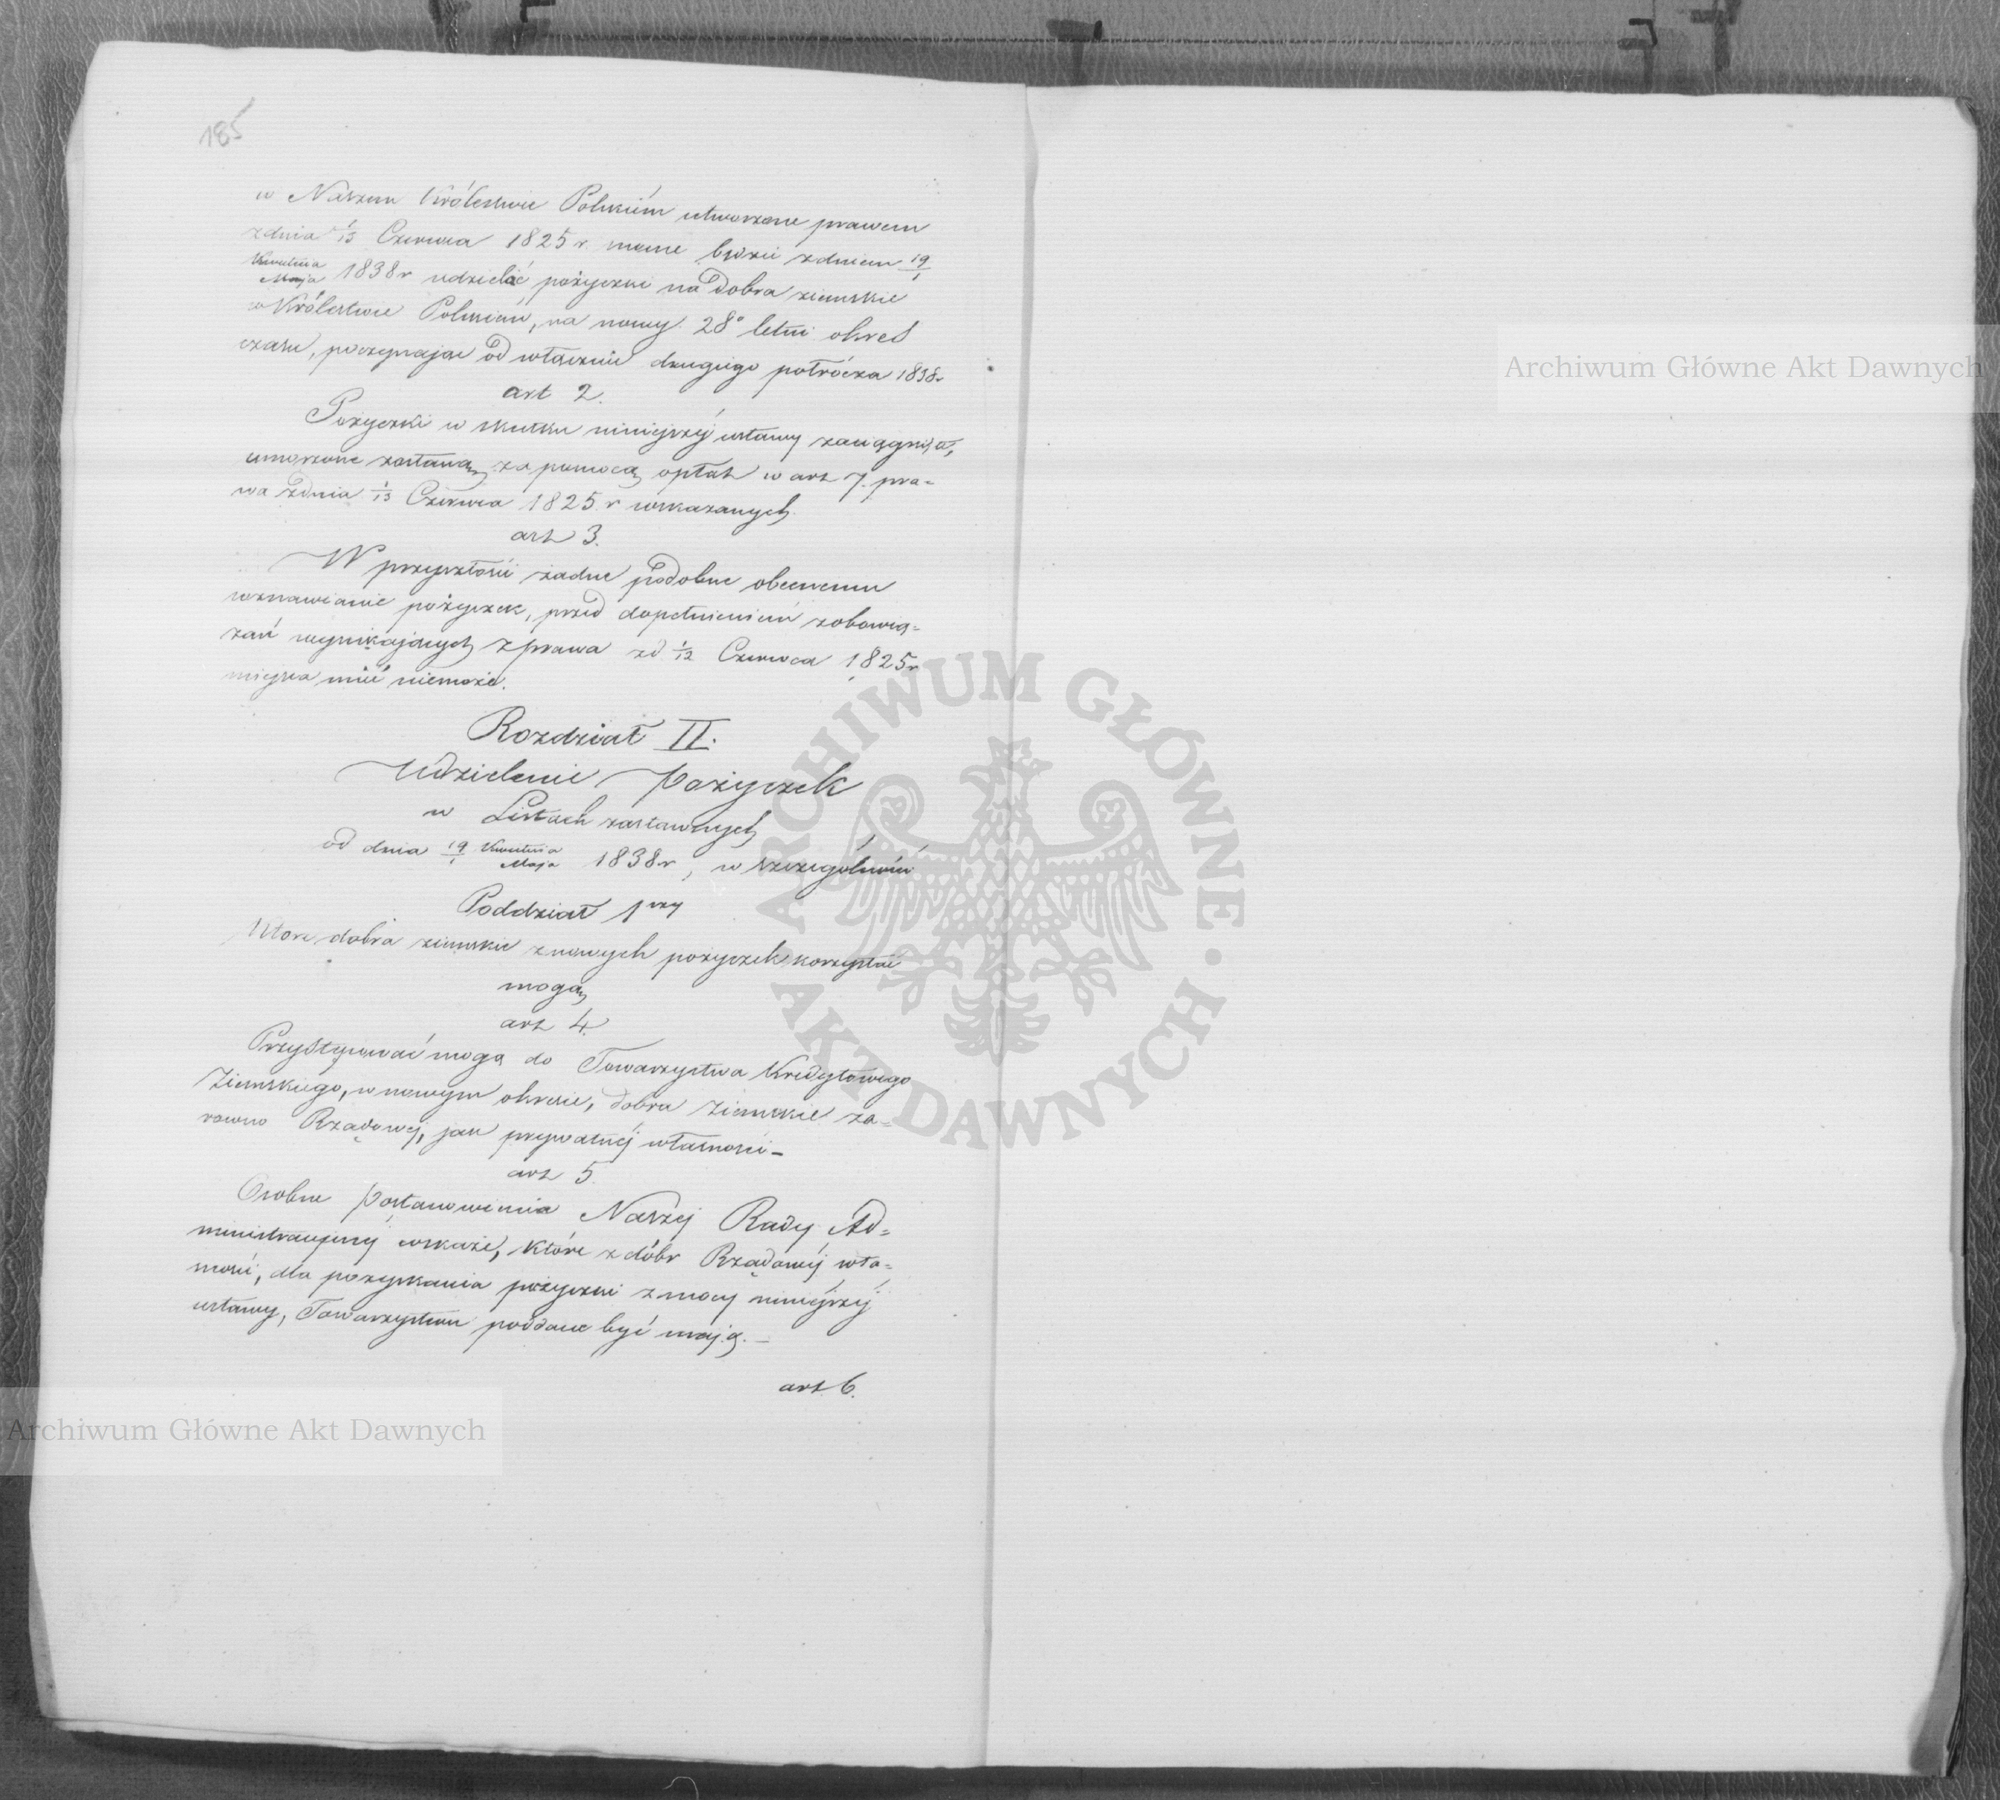 185
w Naszem Królestwie Polskiém utworzone prawem
z dnia 1/13 Czerwca 1825 r. mocne będzie z dniem 19/1
Kwietnia/Maja 1838 r udzielać pożyczki na dobra ziemskie
w Królestwie Polskiem, na nowy 28o letni okres
czasu, poczynając od włącznie drugiego półrocza 1838 r
art 2.
Pożyczki w skutku niniejszéj ustawy zaciągnięte,
umorzone zostaną za pomocą opłat w art 7. pra=
wa z dnia 1/13 Czerwca 1825 r wskazanych.
art 3.
W przyszłości żadne podobne obecnemu
wznawianie pożyczek, przed dopełnieniem zobowią=
zań wynikających z prawa z d 1/13 Czerwca 1825 r
miejsca mieć niemoże.
Rozdział II.
Udzielenie pożyczek
w Listach zastawnych
od dnia 19/1 Kwietnia/Maja 1838 r, w szczególności
Poddział 1wszy
Które dobra ziemskie z nowych pożyczek korzystać
mogą
art 4.
Przystępować mogą do Towarzystwa Kredytowego
Ziemskiego, w nowym okresie, dobra ziemskie za=
rowno Rządowej, jak prywatnéj własności –
art 5.
Osobne postanowienia Naszej Rady Ad=
ministracyjnéj wskaże, które z dóbr Rządowéj wła=
sności, dla pozyskania pożyczki z mocy niniejszéj
ustawy, Towarzystwu poddane być mają. –
art 6.
Archiwum Główne Akt Dawnych
Archiwum Główne Akt Dawnych
ARCHIWUM GŁÓWNE · AKT DAWNYCH ·